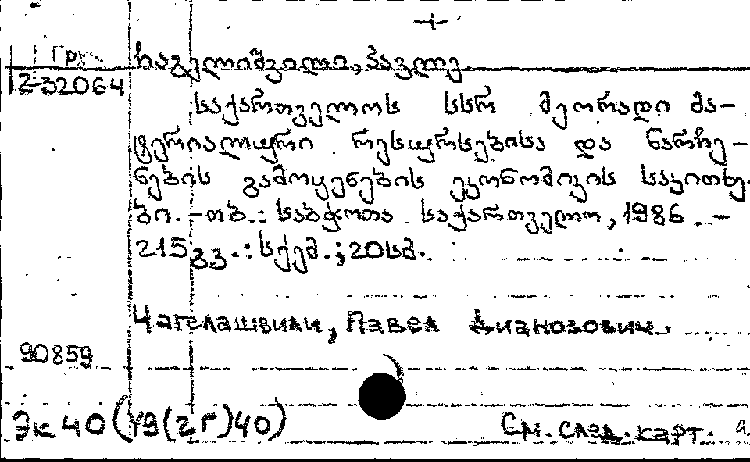 Гру
ჩაგელიშვილი, პავლე
2-32064
საქართველოს სსრ მეორადი მა-
ტერიალური რესურსებისა და ნარჩე-
ნების გამოყენების ეკონომიკის საკითხე-
ბი. - თბ.: საბჭოთა საქართველო, 1986. -
215 გვ.: სქემ.; 20 სმ.
Чагелашвили, Павел Дианозович.
90859
Эк 40 (У9(2Г)40)
См. след. карт.